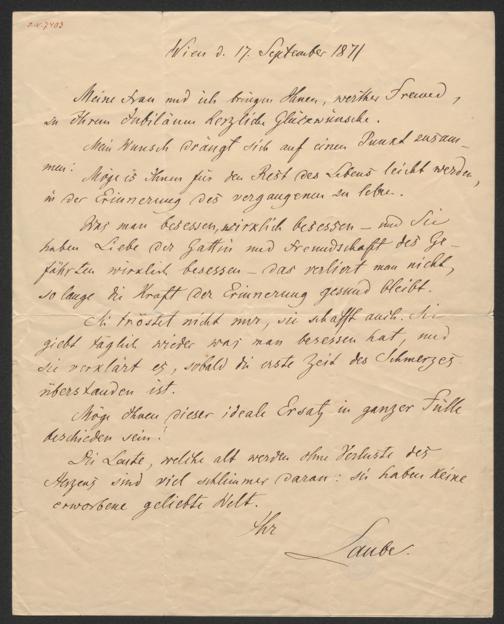 Wien d. 17. September 1871
Meine Frau und ich bringen Ihnen, werther Freund,
zu Ihrem Jubiläum herzliche Glückwünsche.
Mein Wunsch drängt sich auf einen Punkt zusam-
men: Möge es Ihnen für den Rest des Lebens leicht werden,
in der Erinnerung des vergangenen zu leben.
Was man besessen, wirklich besessen – und Sie
haben Liebe der Gattin und Freundschaft des Ge-
fährten wirklich besessen – das verliert man nicht,
so lange die Kraft der Erinnerung gesund bleibt.
Sie tröstet nicht nur, sie schafft auch. Sie
giebt täglich wieder was man besessen hat, und
sie verklärt es, sobald die erste Zeit des Schmerzes
überstanden ist.
Möge Ihnen dieser ideale Ersatz in ganzer Fülle
beschieden sein!
Die Leute, welche alt werden ohne Verluste des
Herzens sind viel schlimmer daran: sie haben keine
erworbene geliebte Welt.
Ihr
Laube.